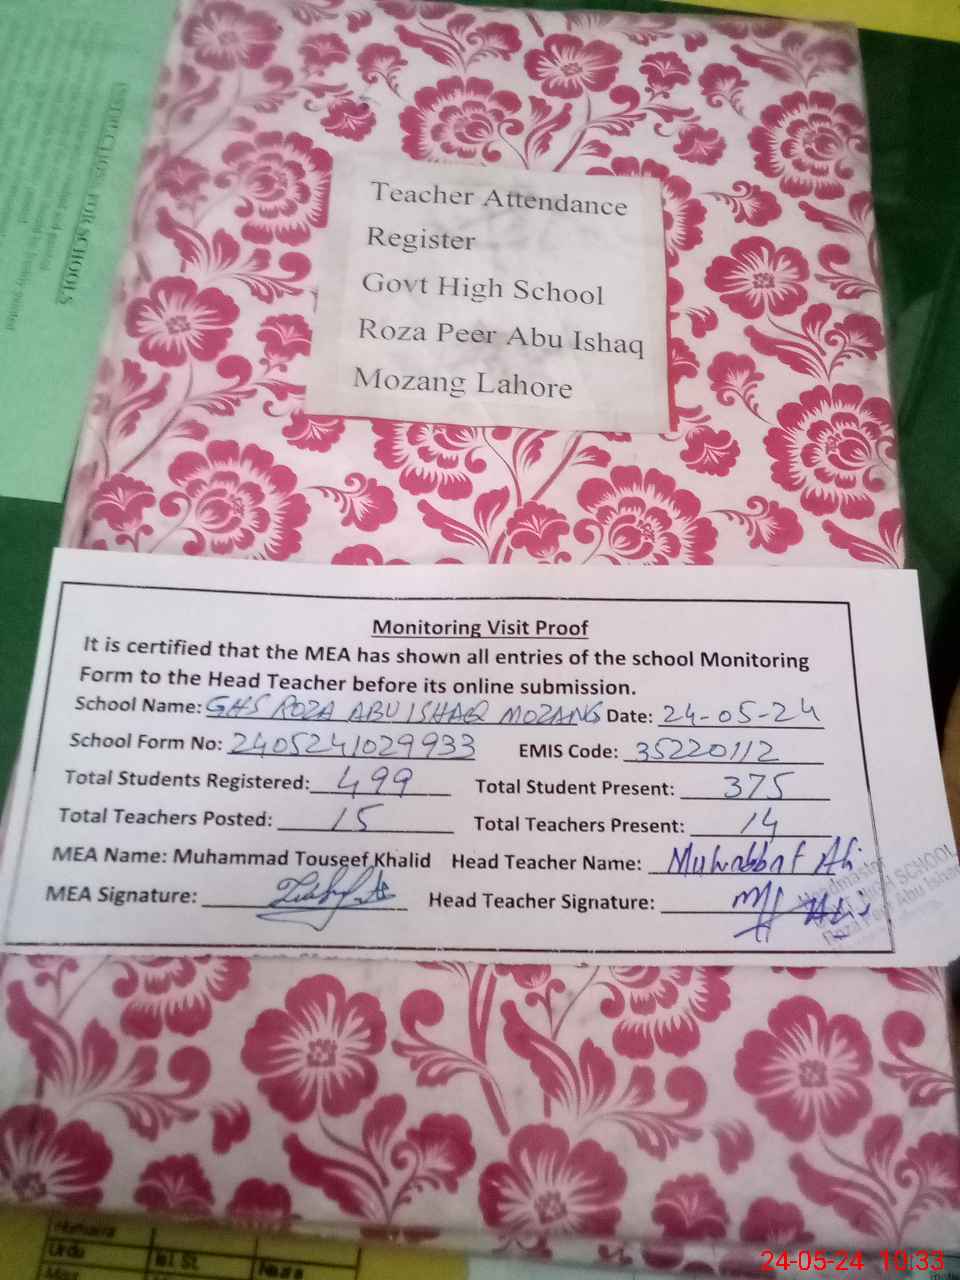 INSTRUCTIONS FOR SCHOOLS
Teacher Attendance
Register
Govt High School
Roza Peer Abu Ishaq
Mozang Lahore
Monitoring Visit Proof
It is certified that the MEA has shown all entries of the school Monitoring
Form to the Head Teacher before its online submission.
School Name: GHS ROZA ABU ISHAQ MOZANG Date: 24-05-24
School Form No: 2405241029933 EMIS Code: 35220112
Total Students Registered: 499 Total Student Present: 375
Total Teachers Posted: 15 Total Teachers Present: 14
MEA Name: Muhammad Touseef Khalid Head Teacher Name: Muhabbat Ali
MEA Signature: Head Teacher Signature:
Headmaster
HIGH SCHOOL
Roza Peer Abu Ishaq
Urdu
24-05-24 10:33